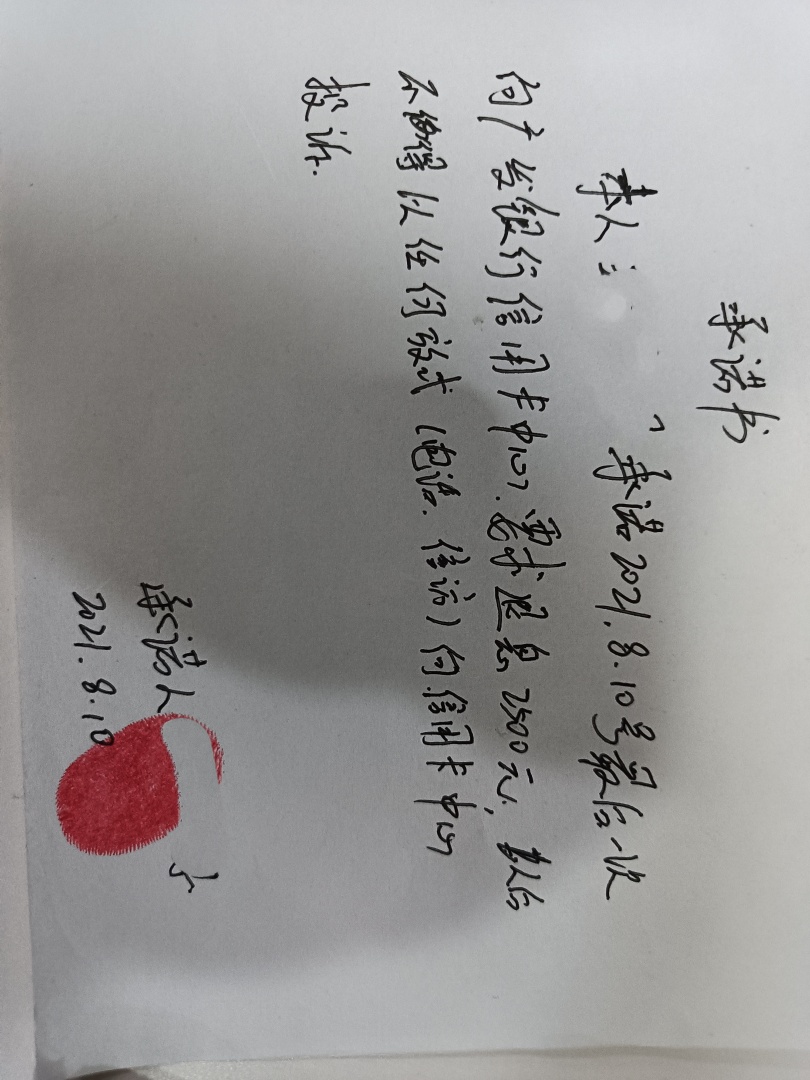 承诺书
本人: 承诺2021.8.10号最后一次
向广发银行信用卡中心.要求退息2500元,
不得以任何方式(电话.信访)向信用卡中心
投诉.
承诺人
2021.8.10